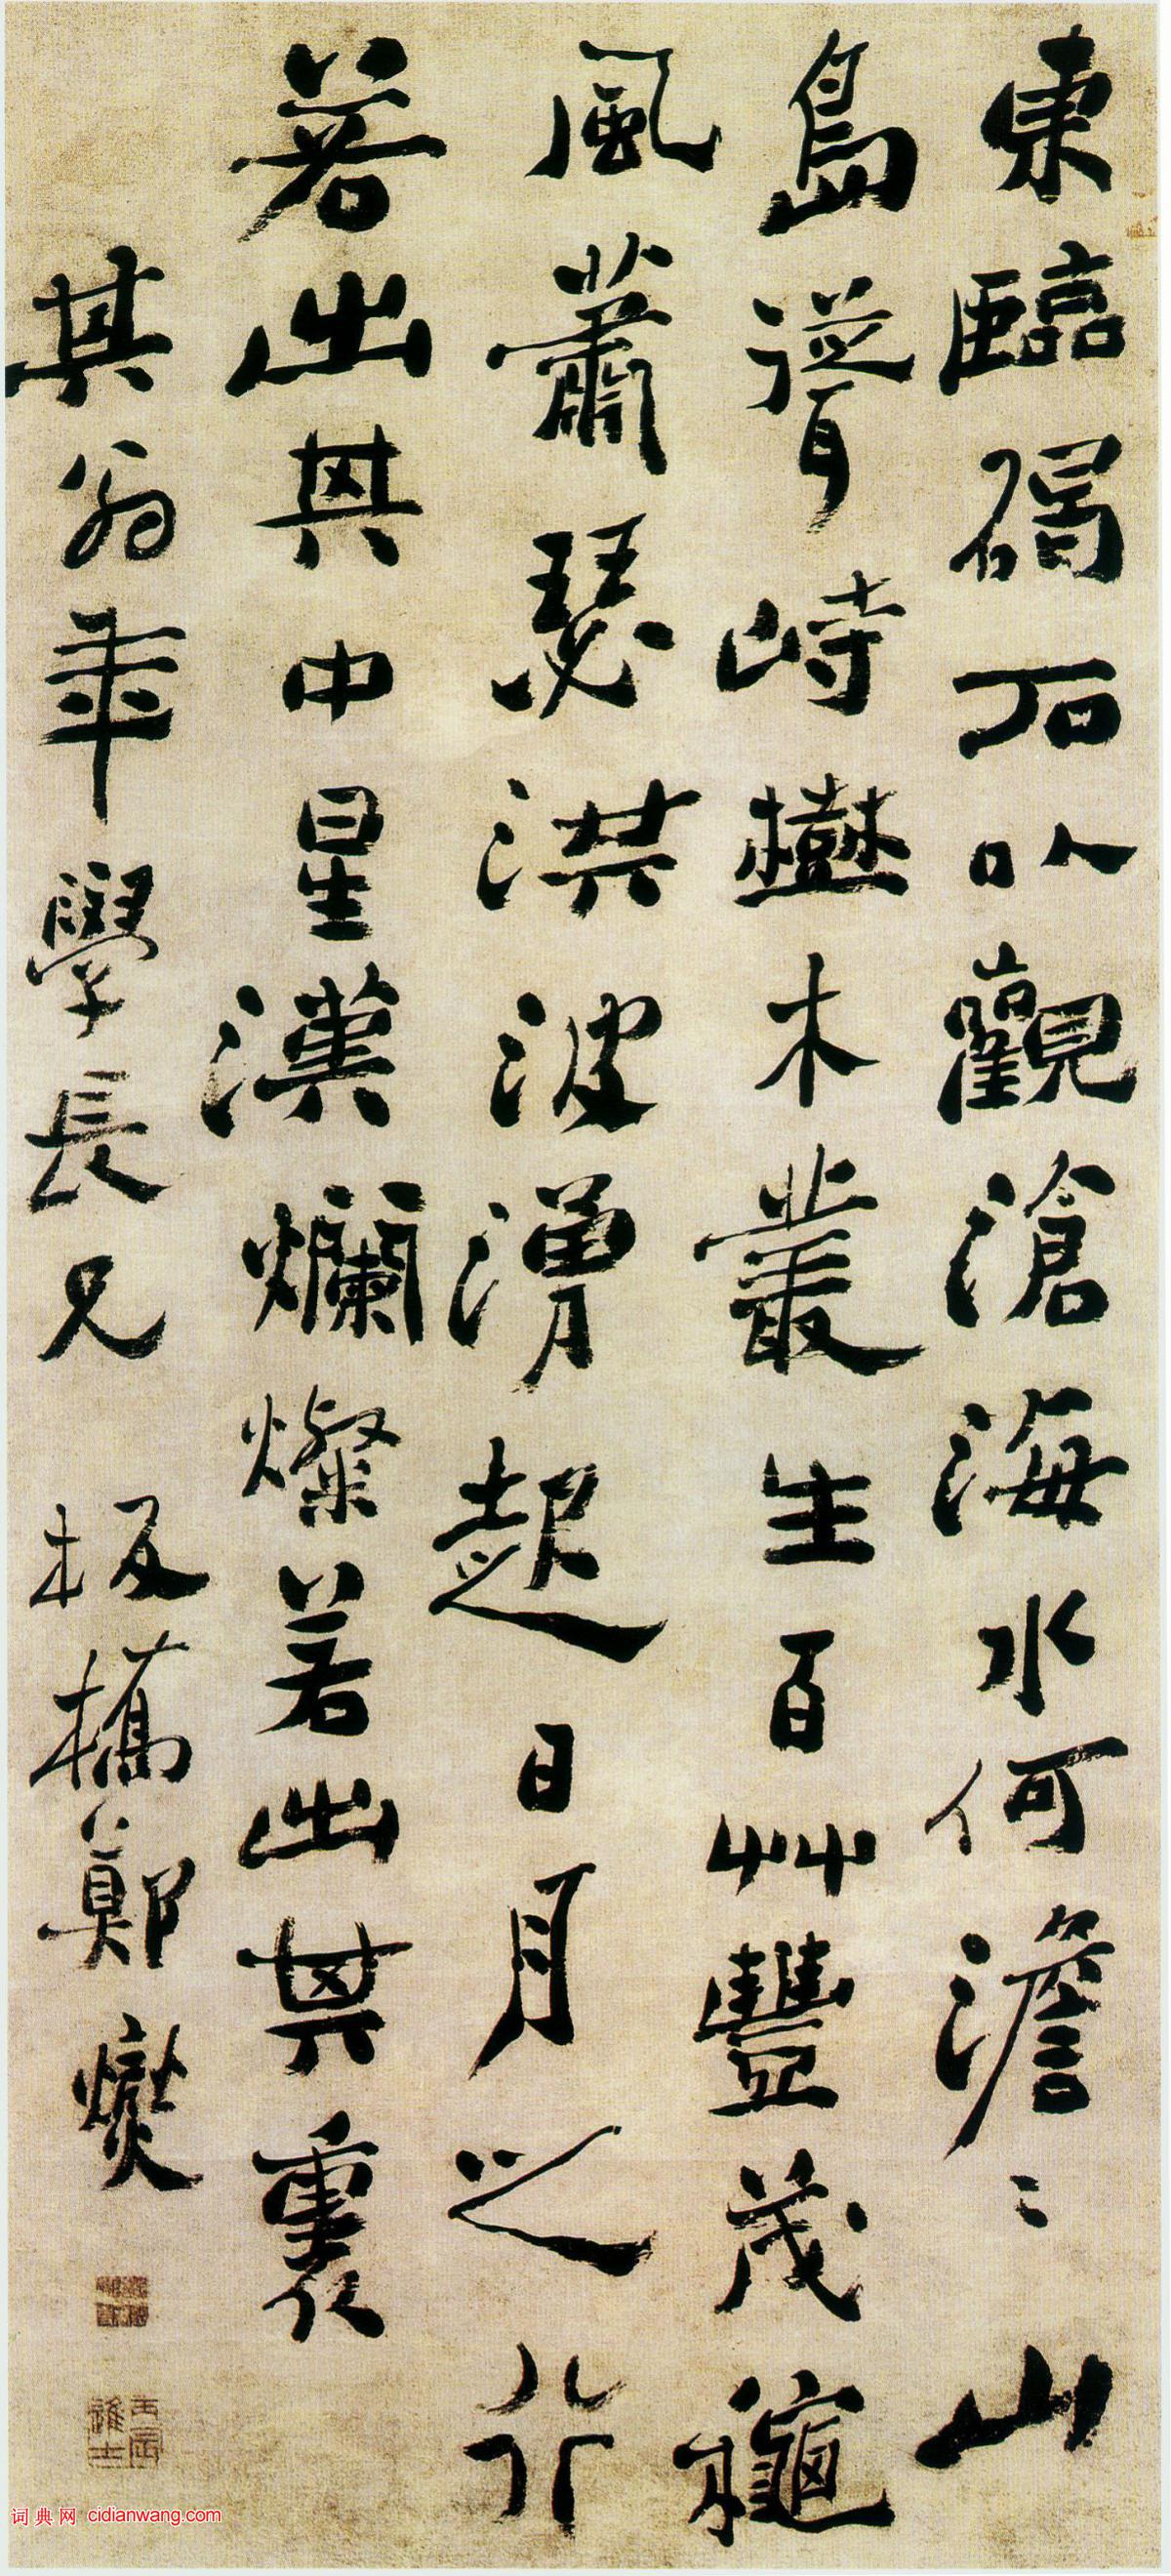 東臨碣石以觀滄海水何澹〻山
島聳峙樹木叢生百艸豐茂龝
風蕭瑟洪波湧起日月之行
若出其中星漢爛燦若出其裏
其翁年學長兄 板橋鄭燮
丙辰進士
词典网 cidianwang.com